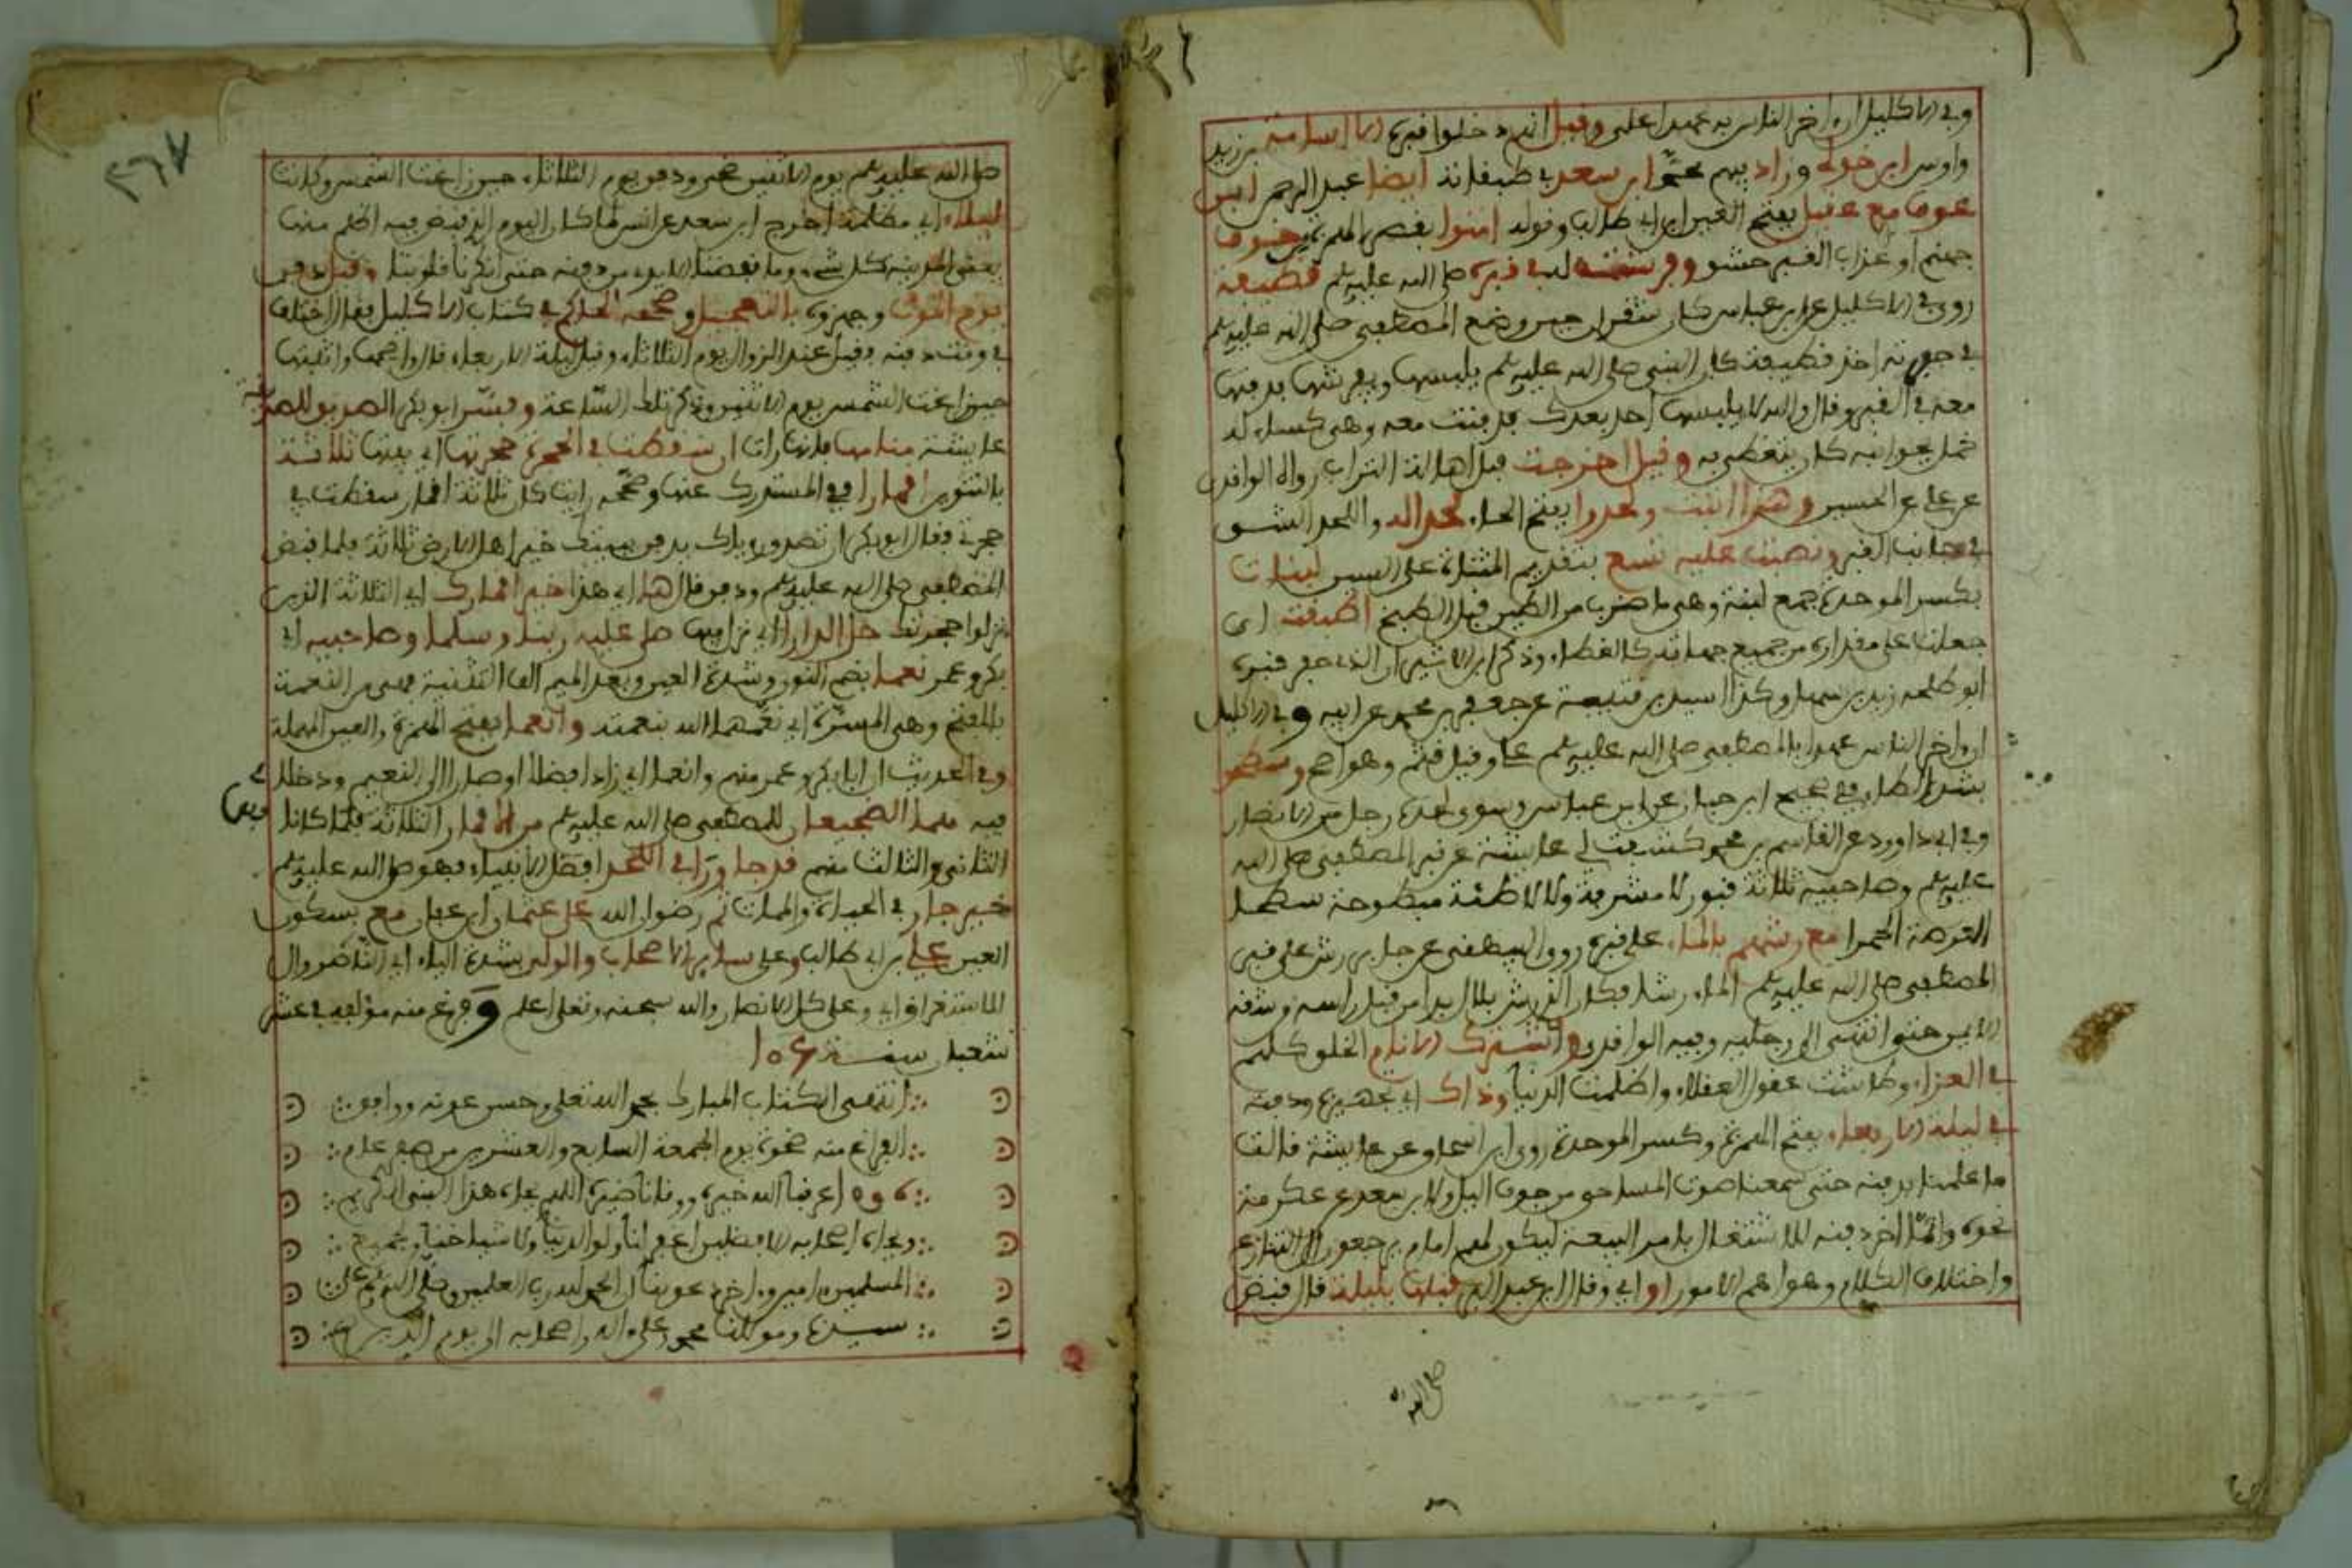 وفي الاكليل ان اخر الناس به عهدا علي وقيل انه دخلوا قبره اسامة بن زيد
واوس ابن خولي وزاد ابن سعد في طبقاته ايضا عبد الرحمن ابن
عوف مع عقيل بفتح العين ابن ابي طالب وقوله امنوا بقصر الهمزة خوف
جهنم او عذاب القبر وفرشت له في قبره صلى الله عليه وسلم قطيفة
روى في الاكليل عن ابن عباس كان شقران حين وضع المصطفى صلى الله عليه وسلم
في حفرته اخذ قطيفة كان النبي صلى الله عليه وسلم يلبسها ويفرشها فدفنها
معه في القبر وقال والله لا يلبسها احد بعدك فدفنت معه وهي كساء له
خمل بجوانبه كان يتغطى به وقيل اخرجت قبل اهالة التراب رواه الواقدي
عن علي بن الحسين وهذا اثبت ولحدوا بفتح الحاء لحدا له واللحد الشق
في جانب القبر ونصبت عليه تسع بتقديم المثناة على السين لبنات
بكسر الموحدة جمع لبنة وهي ما ضرب من الطين قبل الطبخ اطبقت اي
جعلت على مقداره من جميع جهاته كالغطاء وذكر ابن الاثير ان الذي حفر قبره
ابو طلحة زيد بن سهل وكذا اسيد بن عن جعفر بن محمد عن ابيه وفي الاكليل
ان اخر الناس عهدا بالمصطفى صلى الله عليه وسلم علي وقيل قثم وهو اصح وسطحوا
بشد الطاء وفي صحيح ابن حبان عن ابن عباس وسوى لحده رجل من الانصار
وفي ابي داوود عن القاسم بن محمد كشفت لي عايشة عن قبر المصطفى صلى الله
عليه وسلم وصاحبيه ثلاثة قبور لا مشرفة ولا لاطئة مبطوحة ببطحاء
العرصة الحمرا مع رشهم بالماء على قبره روى البيهقي عن جابر رش على قبر
المصطفى صلى الله عليه وسلم الماء رشا فكان الذي رش بلال بدا من قبل راسه وشقه
الايمن حتى انتهى الى رجليه وفيه الواقدي واشترك الانام الخلق كلهم
في العزاء وطاشت عقول العقلاء واظلمت الدنيا وذاك اي تجهيزه ودفنه
في ليلة الاربعاء بفتح الهمزة وكسر الموحدة روى ابن اسحاق عن عايشة قالت
ما علمنا بدفنه حتى سمعنا صوت المساحي من جوف الليل ولابن سعد عن عكرمة
نحوه وانما اخر دفنه للاشتغال بامر البيعة ليكون لهم امام يرجعون اليه
واختلاف الكلام وهو اهم الامور او اي وقال ابن عبد البر قبلها بليلة قال قبض
صلى الله
٢٦٧
صلى الله عليه وسلم يوم الاثنين ضحى ودفن يوم الثلاثاء حين زاغت الشمس وكانت
ليلاء اي مظلمة اخرج ابن سعد عن انس لما كان اليوم الذي قبض فيه اظلم منها
يعني المدينة كل شيء وما نفضنا الايدي من دفنه حتى انكرنا قلوبنا وقيل دفن
يوم الموت وجهزوه بالتعجيل وصححه الحاكم في كتاب الاكليل فقال اختلف
في وقت دفنه فقيل عند الزوال يوم الثلاثاء وقيل ليلة الاربعاء قال واصحها واثبتها
حين زاغت الشمس يوم الاثنين وذكر تلك الساعة وفسر ابو بكر الصديق للصديقة
عايشة منامها فانها رات ان سقطت في الحجرة حجرتها اي بيتها ثلاثة
بالتنوين اقمارا في المستدرك عنها وصححه رايت كان ثلاثة اقمار سقطت في
حجرتي فقال ابو بكر ان تصدق رؤياك يدفن ببيتك خير اهل الارض ثلاثة فلما قبض
المصطفى صلى الله عليه وسلم ودفن قال لها اي هذا خير اقمارك اي الثلاثة الذين
نزلوا حجرتك حل الدارا اي نزل بها صلى عليه ربنا وسلما وصاحبيه ابي
بكر وعمر نعما بضم النون وشدة العين وبعد الميم الف التثنية من النعمة
بالفتح وهي المسرة اي نعمهما الله بنعمته وانعما بفتح الهمزة والعين المهملة
وفي الحديث ان ابا بكر وعمر منهم وانعما اي زادا فضلا او صارا الى النعيم ودخلا
فيه هما الضجيعان للمصطفى صلى الله عليه وسلم من الاقمار الثلاثة فلما كانا
الثاني والثالث منهم قد جاورا في اللحد افضل الانبياء فهو صلى الله عليه وسلم
خير جار في الحياة والممات ثم رضوان الله على عثمان ابن عفان مع بسكون
العين علي بن ابي طالب وعلى ساير الاصحاب والولي بشدة الياء اي الناصر وال
للاستغراق اي وعلى كل الانصار والله سبحنه وتعلى اعلم وفرغ منه مؤلفه في عشر
شعبان سنة ١٠٥٤
انتهى الكتاب المبارك بحمد الله تعلى وحسن عونه ووافق
الفراغ منه ضحوة يوم الجمعة السابع والعشرين من صفر عام
عرفنا الله خيره ووقانا ضيره اللهم بجاه هذا النبي الكريم
وبجاه اصحابه الافضلين اغفر لنا ولوالدينا ولاشياخنا ولجميع
المسلمين امين واخر دعوينا ان الحمد لله رب العلمين وصلى الله على
سيدنا ومولانا محمد وعلى اله واصحابه الى يوم الدين